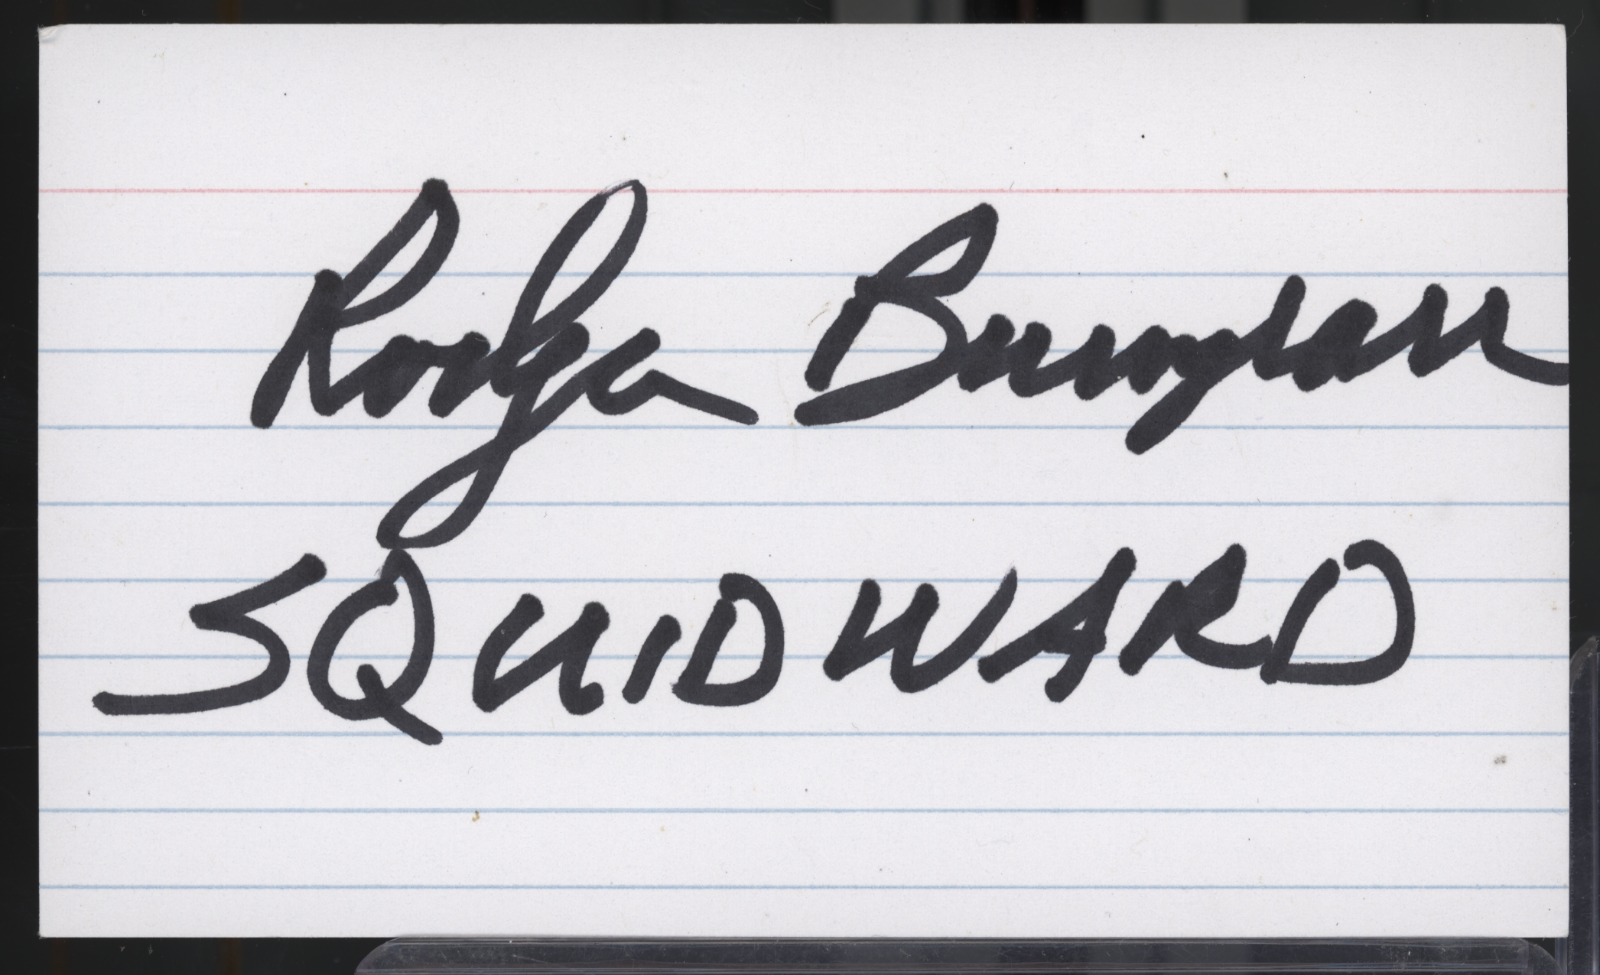 Rodger Bumpass
SQUIDWARD